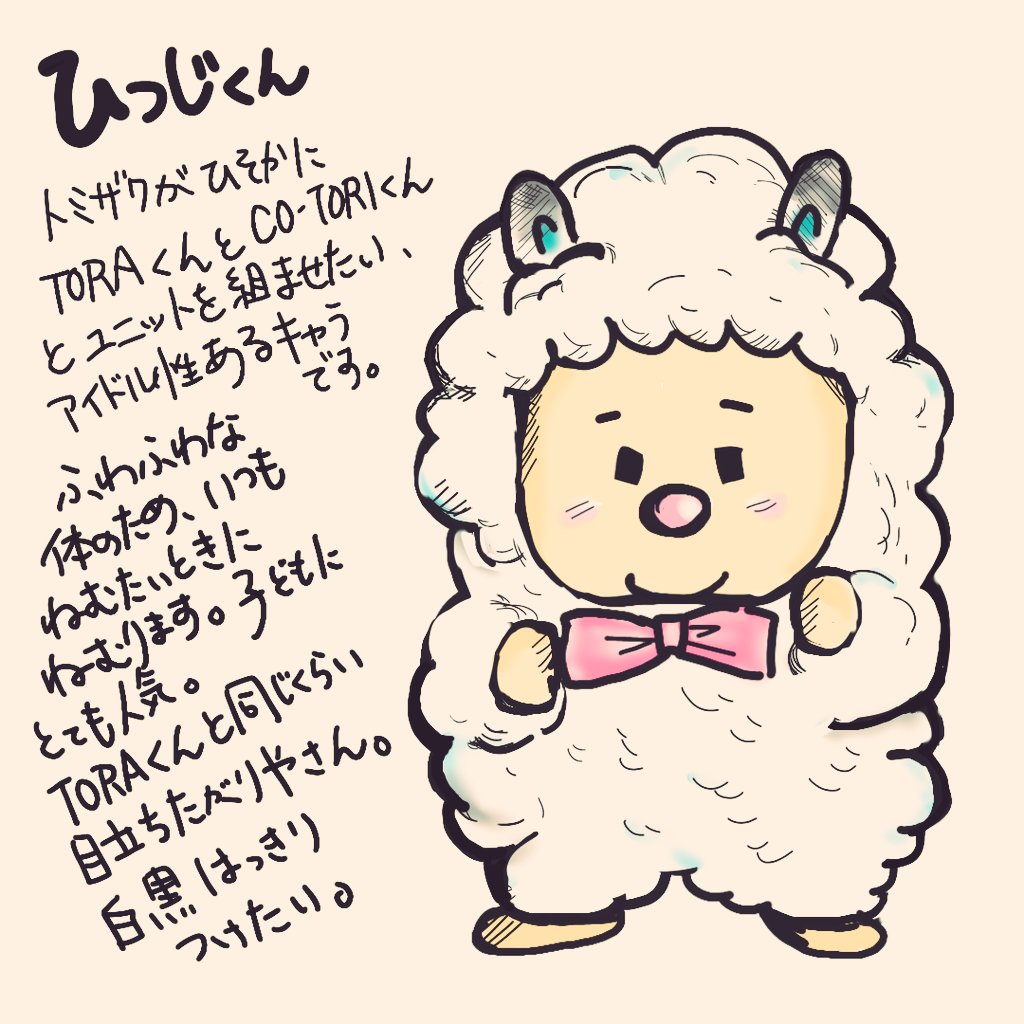 ひつじくん
トミザワがひそかに
TORAくんとCO-TORIくん
とユニットを組ませたい、
アイドル性あるキャラ
です。
ふわふわな
体のため、いつも
ねむたいときに
ねむります。子どもに
とても人気。
TORAくんと同じくらい
目立ちたがりやさん。
白黒はっきり
つけたい。